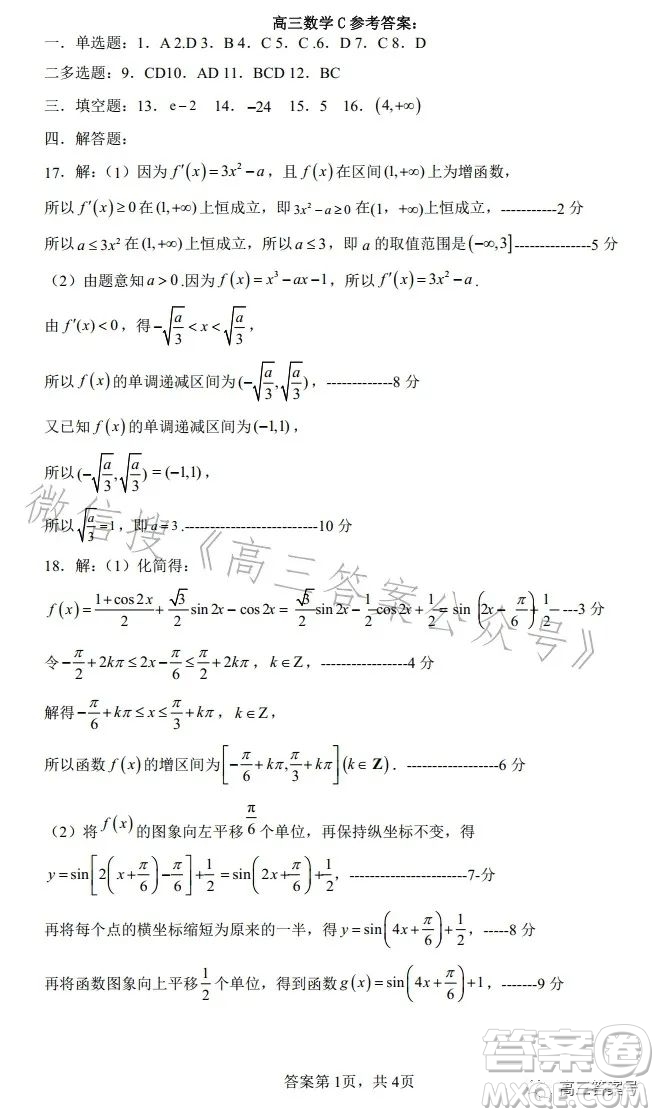 高三数学 C 参考答案：
一．单选题：1．A 2.D 3．B 4．C 5．C .6．D 7．C 8．D
二多选题：9．CD10．AD 11．BCD 12．BC
三．填空题：13．e－2　14．−24　15．5　16．(4,+∞)
四．解答题：
17．解：（1）因为 f′(x)=3x²−a，且 f(x) 在区间 (1,+∞) 上为增函数，
所以 f′(x)≥0 在 (1,+∞) 上恒成立，即 3x²−a≥0 在(1，+∞)上恒成立，-----------2 分
所以 a≤3x² 在 (1,+∞) 上恒成立，所以 a≤3，即 a 的取值范围是 (−∞,3]---------------5 分
（2）由题意知 a>0 .因为 f(x)=x³−ax−1，所以 f′(x)=3x²−a .
由 f′(x)<0，得 −√(a/3)<x<√(a/3)，
所以 f(x) 的单调递减区间为 (−√(a/3),√(a/3))，-------------8 分
又已知 f(x) 的单调递减区间为 (−1,1)，
所以 (−√(a/3),√(a/3))=(−1,1)，
所以 √(a/3)=1，即 a=3 .--------------------------10 分
18．解：（1）化简得：
f(x)=(1+cos2x)/2+(√3/2)sin2x−cos2x=(√3/2)sin2x−(1/2)cos2x+1/2=sin(2x−π/6)+1/2 ---3 分
令 −π/2+2kπ≤2x−π/6≤π/2+2kπ，k∈Z，-----------------4 分
解得 −π/6+kπ≤x≤π/3+kπ，k∈Z，
所以函数 f(x) 的增区间为 [−π/6+kπ,π/3+kπ](k∈Z)．------------------6 分
（2）将 f(x) 的图象向左平移 π/6 个单位，再保持纵坐标不变，得
y=sin[2(x+π/6)−π/6]+1/2=sin(2x+π/6)+1/2，-----------------------7-分
再将每个点的横坐标缩短为原来的一半，得 y=sin(4x+π/6)+1/2，-----8 分
再将函数图象向上平移 1/2 个单位，得到函数 g(x)=sin(4x+π/6)+1，-------9 分
微信搜《高三答案公众号》
答案圈
高三答案号
MXQE.COM
答案第 1页，共 4页